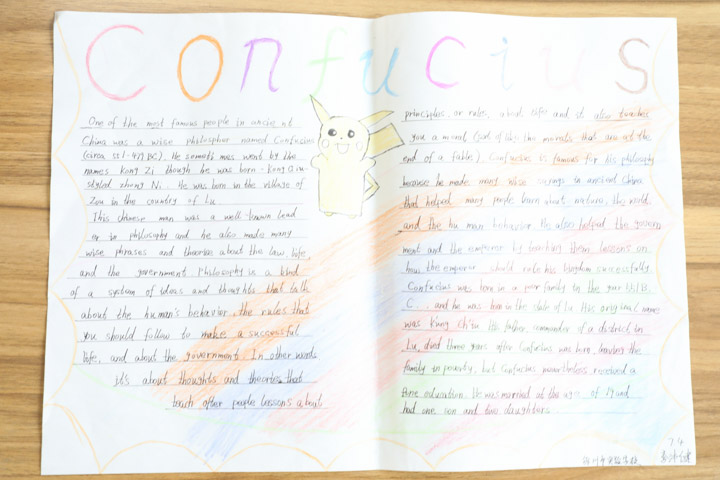 Confucius
One of the most famous people in ancie nt
China was a wise philosopher named Confucius
(circa 551-479 BC). He sometimes went by the
names Kong Zi though he was born - Kong Qiu
styled zhong Ni. He was born in the village of
Zou in the country of Lu.
This chinese man was a well-known lead
er in philosophy and he also made many
wise phrases and theories about the law, life,
and the government. Philosophy is a kind
of a system of ideas and thoughts that talk
about the human's behavior, the rules that
you should follow to make a successful
life, and about the government. In other words
it's about thoughts and theories that
teach other people lessons about
principles, or rules, about life and it also teaches
you a moral (sort of like the morals that are at the
end of a fable). Confucius is famous for his philosophy
because he made many wise sayings in ancient China
that helped many people learn about nature, the world,
and the hu man behavior. He also helped the govern
ment and the emperor by teaching them lessons on
how the emperor should rule his kingdom successfully.
Confucius was born in a poor family in the year 551 B.
C., and he was born in the state of Lu. His original name
was K'ung Ch'iu. His father, commander of a district in
Lu, died three years after Confucius was born, leaving the
family in poverty, but Confucius nevertheless received a
fine education. He was married at the age of 19 and
had one son and two daughters.
7.4